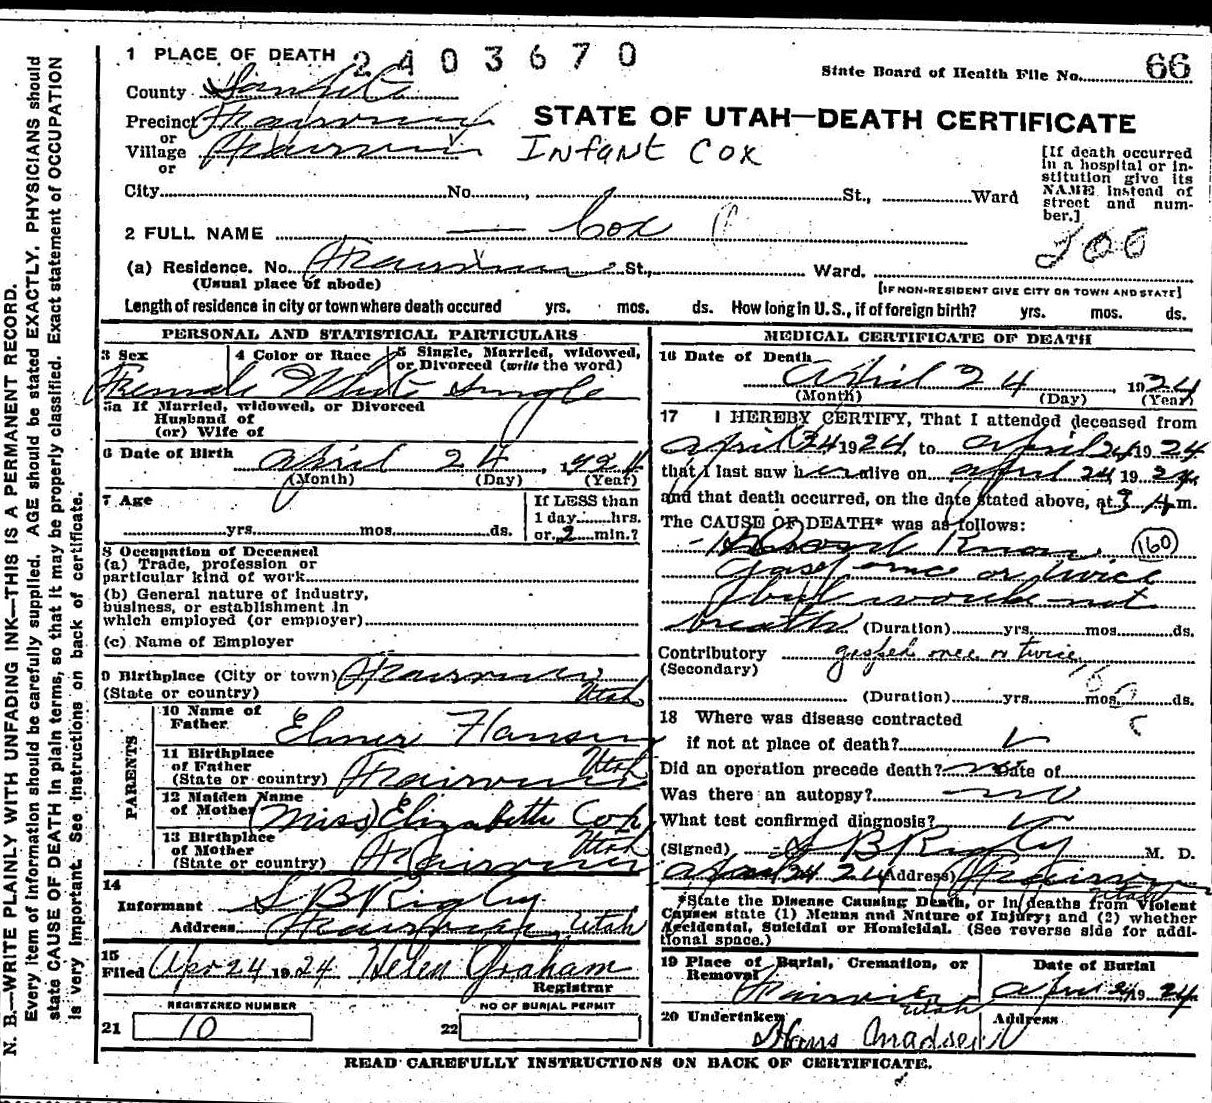 1 PLACE OF DEATH 2403670
State Board of Health File No. 66
County Sanpete
STATE OF UTAH—DEATH CERTIFICATE
Precinct Fairview
or
Village Fairview Infant Cox
or
[If death occurred
in a hospital or in-
stitution give its
NAME instead of
street and num-
ber.]
City No. , St., Ward
2 FULL NAME — Cox
200
(a) Residence. No. Fairview St., Ward.
(Usual place of abode)
[IF NON-RESIDENT GIVE CITY OR TOWN AND STATE]
Length of residence in city or town where death occured yrs. mos. ds. How long in U. S., if of foreign birth? yrs. mos. ds.
PERSONAL AND STATISTICAL PARTICULARS
3 Sex 4 Color or Race 5 Single, Married, widowed,
or Divorced (write the word)
Female White Single
5a If Married, widowed, or Divorced
Husband of
(or) Wife of
6 Date of Birth April 24, 1924
(Month) (Day) (Year)
7 Age
yrs. mos. ds.
If LESS than
1 day hrs.
or 2 min.?
8 Occupation of Deceased
(a) Trade, profession or
particular kind of work
(b) General nature of industry,
business, or establishment in
which employed (or employer)
(c) Name of Employer
9 Birthplace (City or town) Fairview
(State or country) Utah
PARENTS
10 Name of
Father Elmer Hansen
11 Birthplace
of Father Utah
(State or country) Fairview
12 Maiden Name
of Mother (Miss) Elizabeth Cox
13 Birthplace
of Mother Utah
(State or country) Fairview
14
Informant S B Rigby
Address Fairview Utah
15
Filed Apr 24 1924 Helen Graham
Registrar
REGISTERED NUMBER NO OF BURIAL PERMIT
21 10 22
MEDICAL CERTIFICATE OF DEATH
16 Date of Death
April 24, 1924
(Month) (Day) (Year)
17 I HEREBY CERTIFY, That I attended deceased from
April 24 1924, to April 24 1924
that I last saw her alive on April 24, 1924
and that death occurred, on the date stated above, at 3 A m.
The CAUSE OF DEATH* was as follows:
160
gasp once or twice
but would not
breath (Duration) yrs. mos. ds.
Contributory gasped once or twice
(Secondary)
(Duration) yrs. mos. ds.
18 Where was disease contracted
if not at place of death?
Did an operation precede death? no Date of
Was there an autopsy? no
What test confirmed diagnosis?
(Signed) S B Rigby M. D.
April 24 24 (Address) Fairview
Utah
*State the Disease Causing Death, or in deaths from Violent
Causes state (1) Means and Nature of Injury; and (2) whether
Accidental, Suicidal or Homicidal. (See reverse side for addi-
tional space.)
19 Place of Burial, Cremation, or
Removal
Date of Burial
Fairview Utah April 24 1924
20 Undertaker Address
Hans Madsen
READ CAREFULLY INSTRUCTIONS ON BACK OF CERTIFICATE.
N. B.—WRITE PLAINLY WITH UNFADING INK—THIS IS A PERMANENT RECORD.
Every item of information should be carefully supplied. AGE should be stated EXACTLY. PHYSICIANS should
state CAUSE OF DEATH in plain terms, so that it may be properly classified. Exact statement of OCCUPATION
is very important. See instructions on back of certificate.